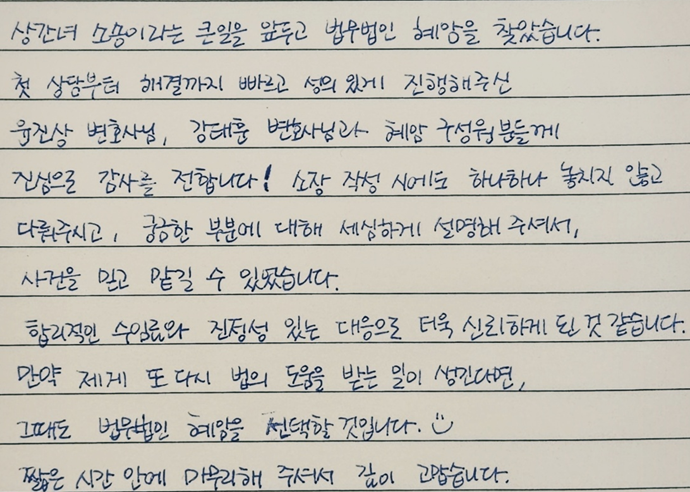 상간녀 소송이라는 큰일을 앞두고 법무법인 혜암을 찾았습니다.
첫 상담부터 해결까지 빠르고 성의있게 진행해주신
윤진상 변호사님, 강태훈 변호사님과 혜암 구성원분들께
진심으로 감사를 전합니다! 소장 작성 시에도 하나하나 놓치지 않고
다뤄주시고, 궁금한 부분에 대해 세심하게 설명해 주셔서,
사건을 믿고 맡길 수 있었습니다.
합리적인 수임료와 진정성 있는 대응으로 더욱 신뢰하게 된 것 같습니다.
만약 제게 또 다시 법의 도움을 받는 일이 생긴다면,
그때도 법무법인 혜암을 선택할 것입니다.
짧은 시간 안에 마무리해 주셔서 깊이 고맙습니다.